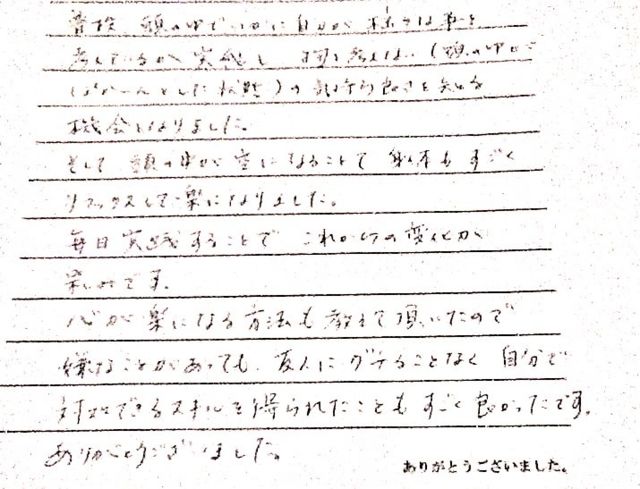 普段、頭の中でいかに自分が様々な事を
考えているか実感し、何も考えない(頭の中が
ぽかーんとした状態)の気持ち良さを知る
機会となりました。
そして 頭の中が空になることで 身体もすごく
リラックスして楽になりました。
毎日実践することで これからの変化が
楽しみです。
心が楽になる方法も教えて頂いたので
嫌なことがあっても、友人にグチることなく 自分で
対処できるスキルを得られたこともすごく良かったです。
ありがとうございました。
ありがとうございました。